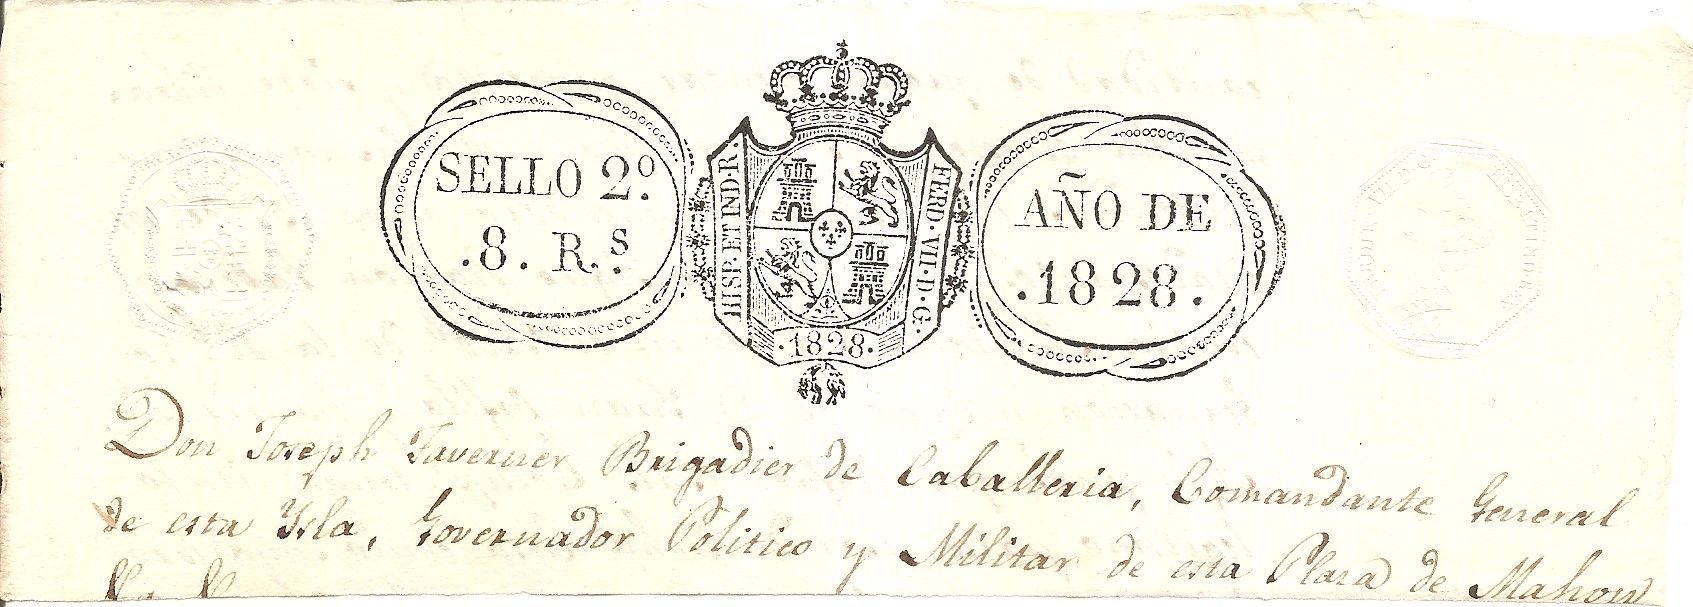 SELLO 2º.
.8. R.s
HISP·ET IND·R·
FERD·VII·D·G·
·1828·
AÑO DE
.1828.
Don Joseph Taverner Brigadier de Caballeria, Comandante General
de esta Ysla, Governador Politico y Militar de esta Plaza de Mahon